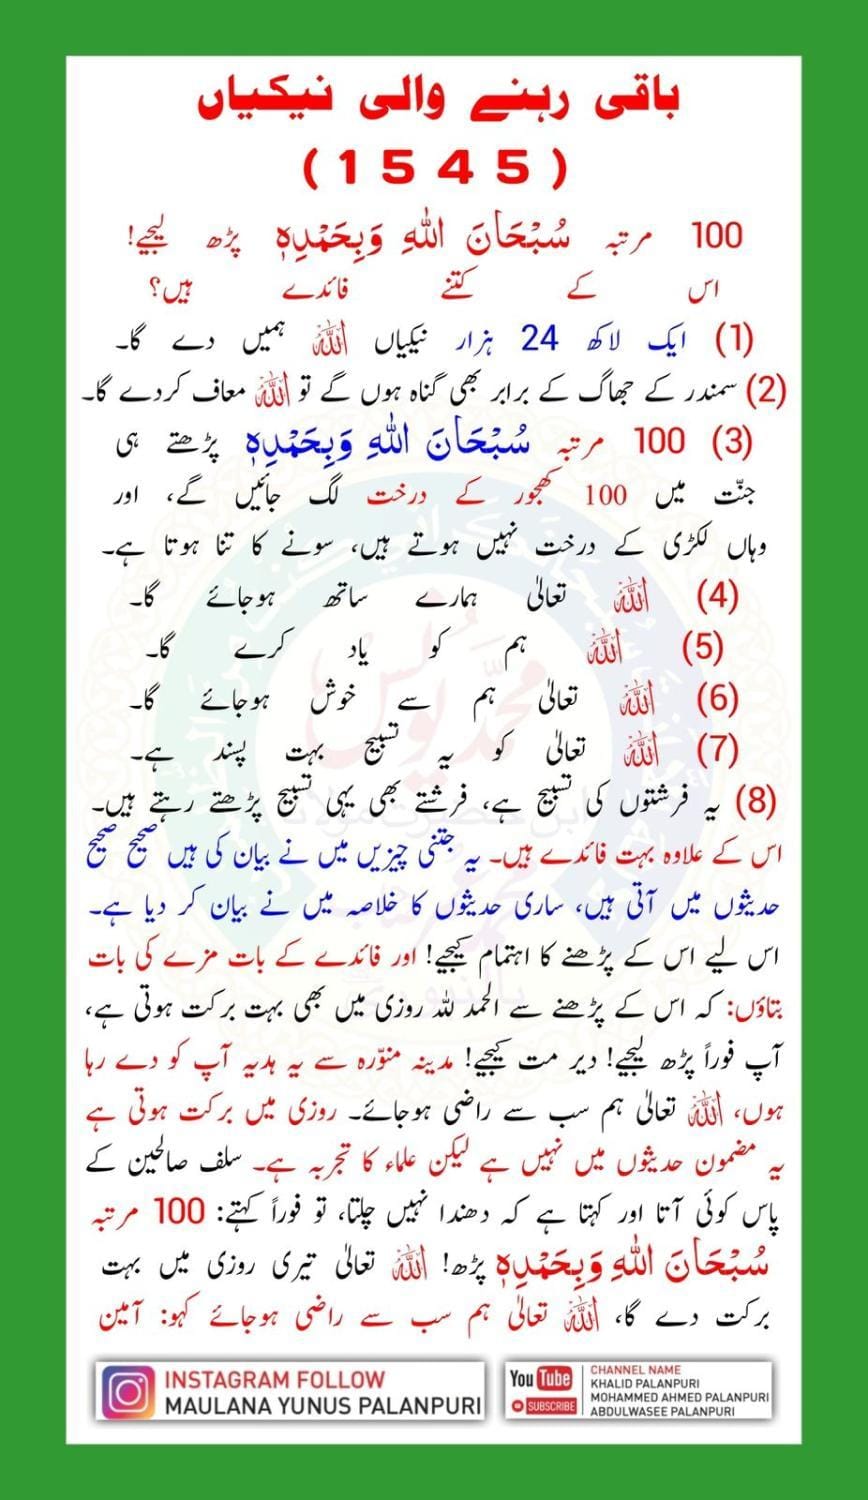 باقی رہنے والی نیکیاں
(1545)
100 مرتبہ سُبْحَانَ اللهِ وَبِحَمْدِهٖ پڑھ لیجیے!
اس کے کتنے فائدے ہیں؟
(1) ایک لاکھ 24 ہزار نیکیاں اَللّٰهُ ہمیں دے گا۔
(2) سمندر کے جھاگ کے برابر بھی گناہ ہوں گے تو اَللّٰهُ معاف کردے گا۔
(3) 100 مرتبہ سُبْحَانَ اللهِ وَبِحَمْدِهٖ پڑھتے ہی
جنّت میں 100 کھجور کے درخت لگ جائیں گے، اور
وہاں لکڑی کے درخت نہیں ہوتے ہیں، سونے کا تنا ہوتا ہے۔
(4) اَللّٰهُ تعالیٰ ہمارے ساتھ ہوجائے گا۔
(5) اَللّٰهُ ہم کو یاد کرے گا۔
(6) اَللّٰهُ تعالیٰ ہم سے خوش ہوجائے گا۔
(7) اَللّٰهُ تعالیٰ کو یہ تسبیح بہت پسند ہے۔
(8) یہ فرشتوں کی تسبیح ہے، فرشتے بھی یہی تسبیح پڑھتے رہتے ہیں۔
اس کے علاوہ بہت فائدے ہیں۔ یہ جتنی چیزیں میں نے بیان کی ہیں صحیح صحیح
حدیثوں میں آتی ہیں، ساری حدیثوں کا خلاصہ میں نے بیان کر دیا ہے۔
اس لیے اس کے پڑھنے کا اہتمام کیجیے! اور فائدے کے بات مزے کی بات
بتاؤں: کہ اس کے پڑھنے سے الحمد للہ روزی میں بھی بہت برکت ہوتی ہے،
آپ فوراً پڑھ لیجیے! دیر مت کیجیے! مدینہ منوّرہ سے یہ ہدیہ آپ کو دے رہا
ہوں، اَللّٰهُ تعالیٰ ہم سب سے راضی ہوجائے۔ روزی میں برکت ہوتی ہے
یہ مضمون حدیثوں میں نہیں ہے لیکن علماء کا تجربہ ہے۔ سلف صالحین کے
پاس کوئی آتا اور کہتا ہے کہ دھندا نہیں چلتا، تو فوراً کہتے: 100 مرتبہ
سُبْحَانَ اللهِ وَبِحَمْدِهٖ پڑھ! اَللّٰهُ تعالیٰ تیری روزی میں بہت
برکت دے گا، اَللّٰهُ تعالیٰ ہم سب سے راضی ہوجائے کہو: آمین
INSTAGRAM FOLLOW
MAULANA YUNUS PALANPURI
YouTube
SUBSCRIBE
CHANNEL NAME
KHALID PALANPURI
MOHAMMED AHMED PALANPURI
ABDULWASEE PALANPURI